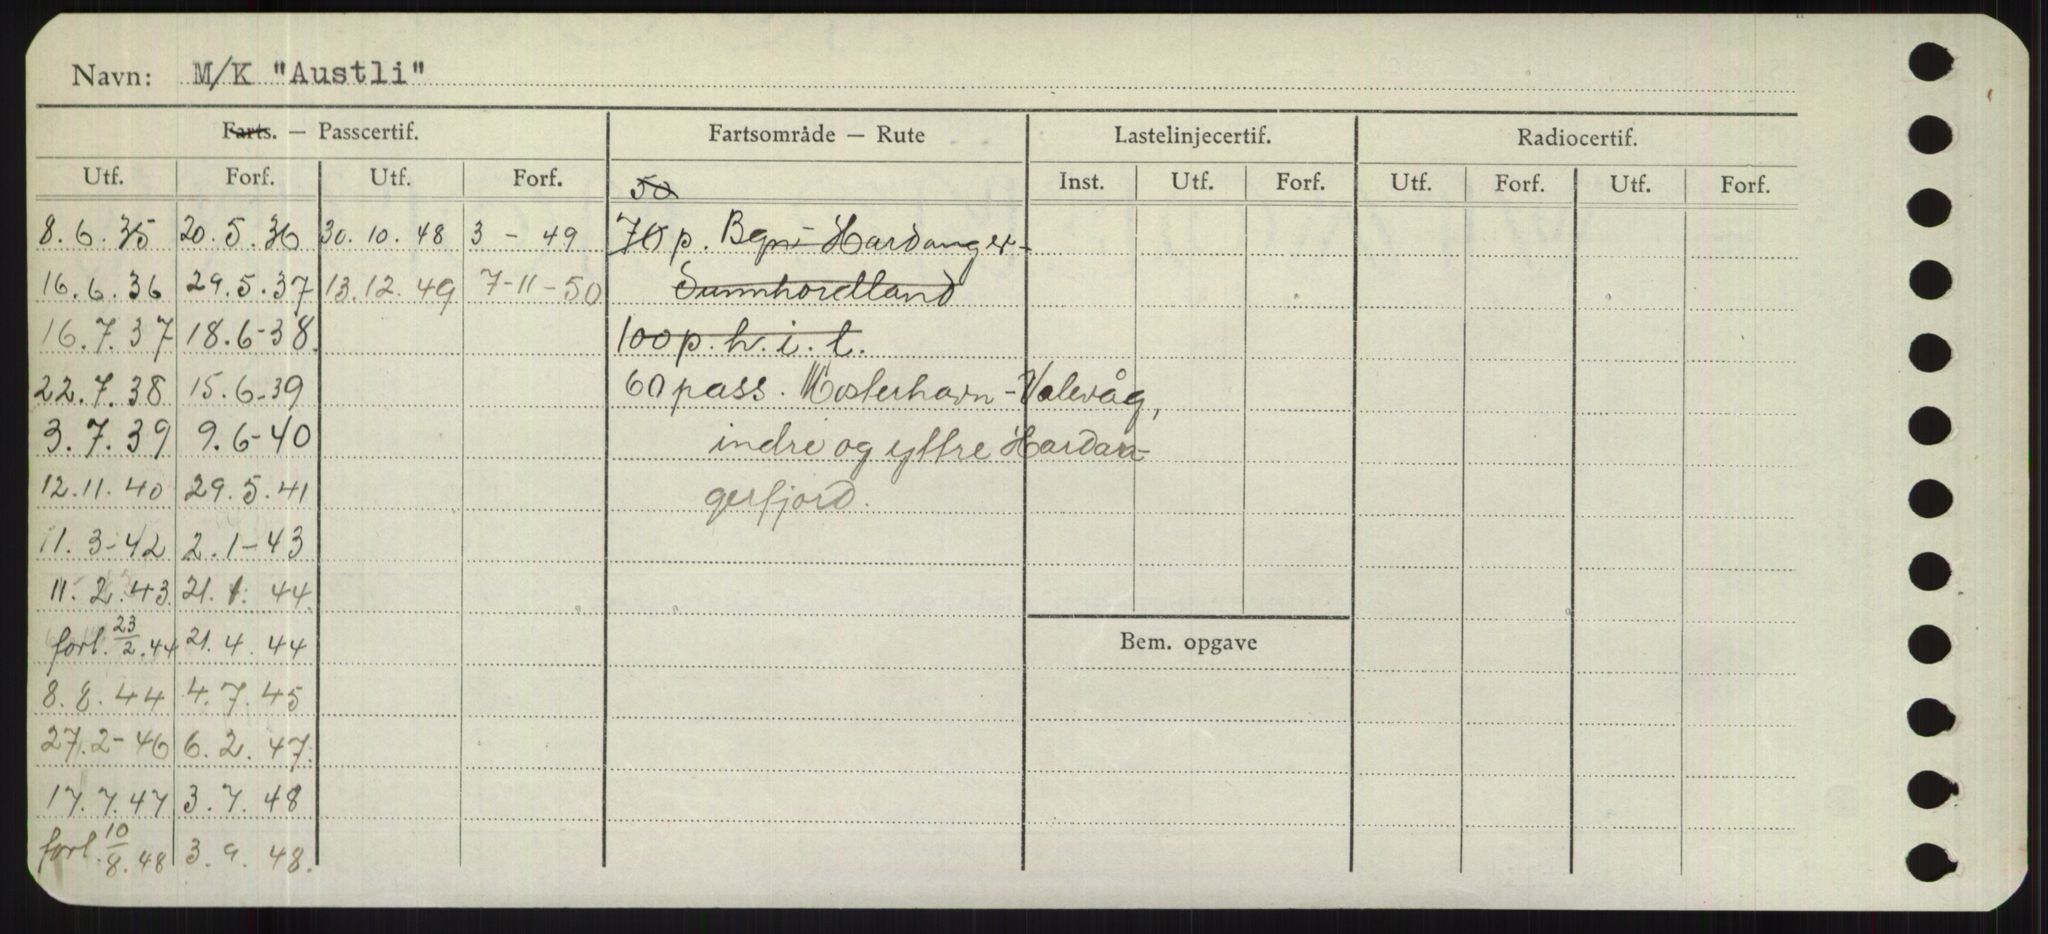 Navn: M/K "Austli"
Farts. — Passcertif. Fartsområde — Rute Lastelinjecertif. Radiocertif.
Utf. Forf. Utf. Forf. 50 Inst. Utf. Forf. Utf. Forf. Utf. Forf.
8.6.35 20.5.36 30.10.48 3 - 49 70 p. Bgn- Hardanger-
16.6.36 29.5.37 13.12.49 7-11-50 Sunnhordland
16.7.37 18.6-38 100 p. h.i.t.
22.7.38 15.6-39 60 pass. Mosterhavn - Valevåg,
3.7.39 9.6-40 indre og yttre Hardan-
12.11.40 29.5.41 gerfjord.
11.3-42 2.1-43
11.2.43 21.1.44
forl. 23/2.44 21.4.44
Bem. opgave
8.8.44 4.7.45
27.2-46 6.2.47
17.7.47 3.7.48
forl. 10/8.48 3.9.48.